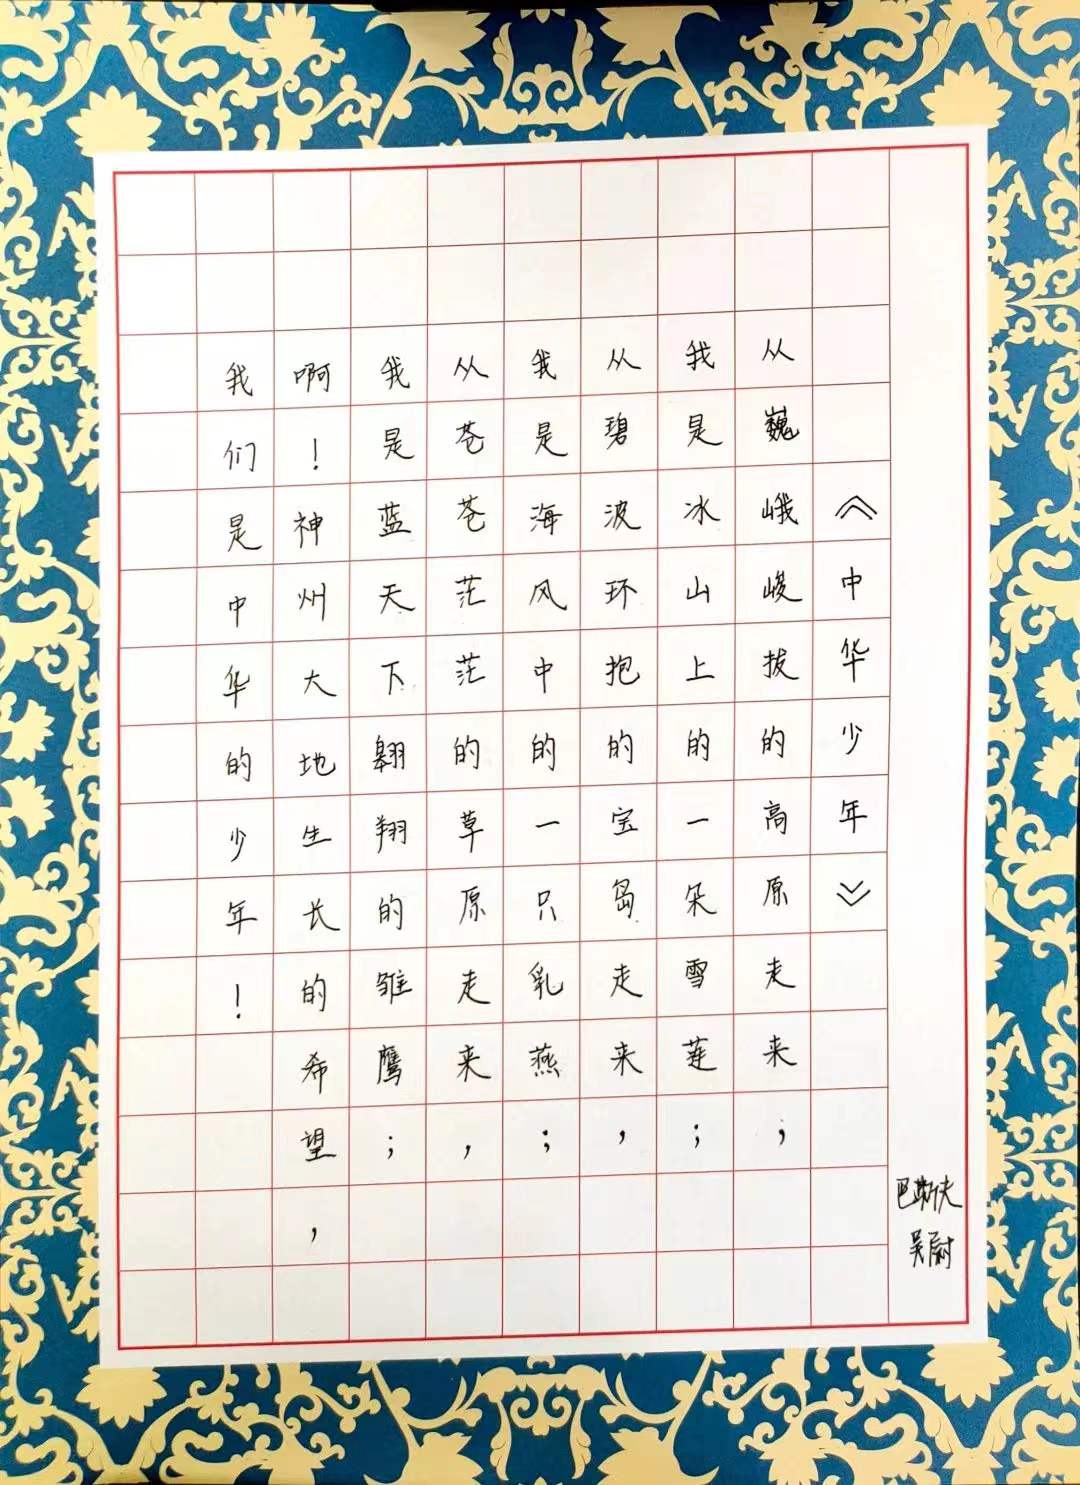 《中华少年》
从巍峨峻拔的高原走来；
我是冰山上的一朵雪莲；
从碧波环抱的宝岛走来，
我是海风中的一只乳燕；
从苍苍茫茫的草原走来，
我是蓝天下翱翔的雏鹰；
啊！神州大地生长的希望，
我们是中华的少年！
巴斯夫
吴尉